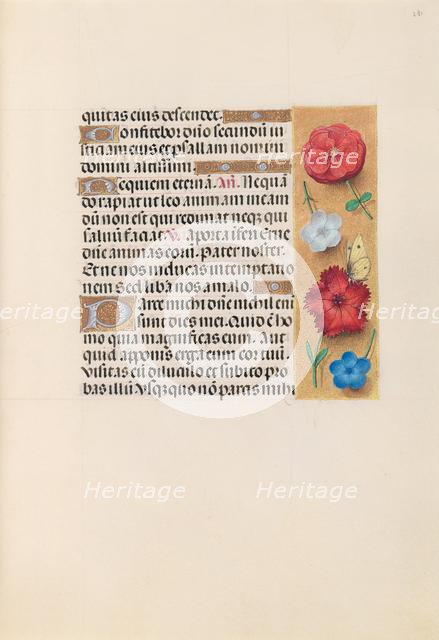 quitas eius descendet.
Confitebor dño secundũ iu
sticiam eius et psallam nomini
domini altissimi.
Requiem eternã. Añ. Nequã
do rapiat ut leo animam meam
dũ non est qui redimat neq̃ qui
saluũ faciat. V. A porta iferi Erue
dñe animas eorũ. Pater noster.
Et ne nos inducas in temptatio
nem Sed libera nos a malo.
Parce michi dñe nichil enĩ
sunt dies mei. Quid ẽ ho
mo quia magnificas eum. Aut
quid apponis erga eum cor tuũ.
Visitas eũ diluculo et subito pro
bas illũ Vsquequo nõ parcis mihi
Heritage
Heritage
Heritage
Heritage
Heritage
Heritage